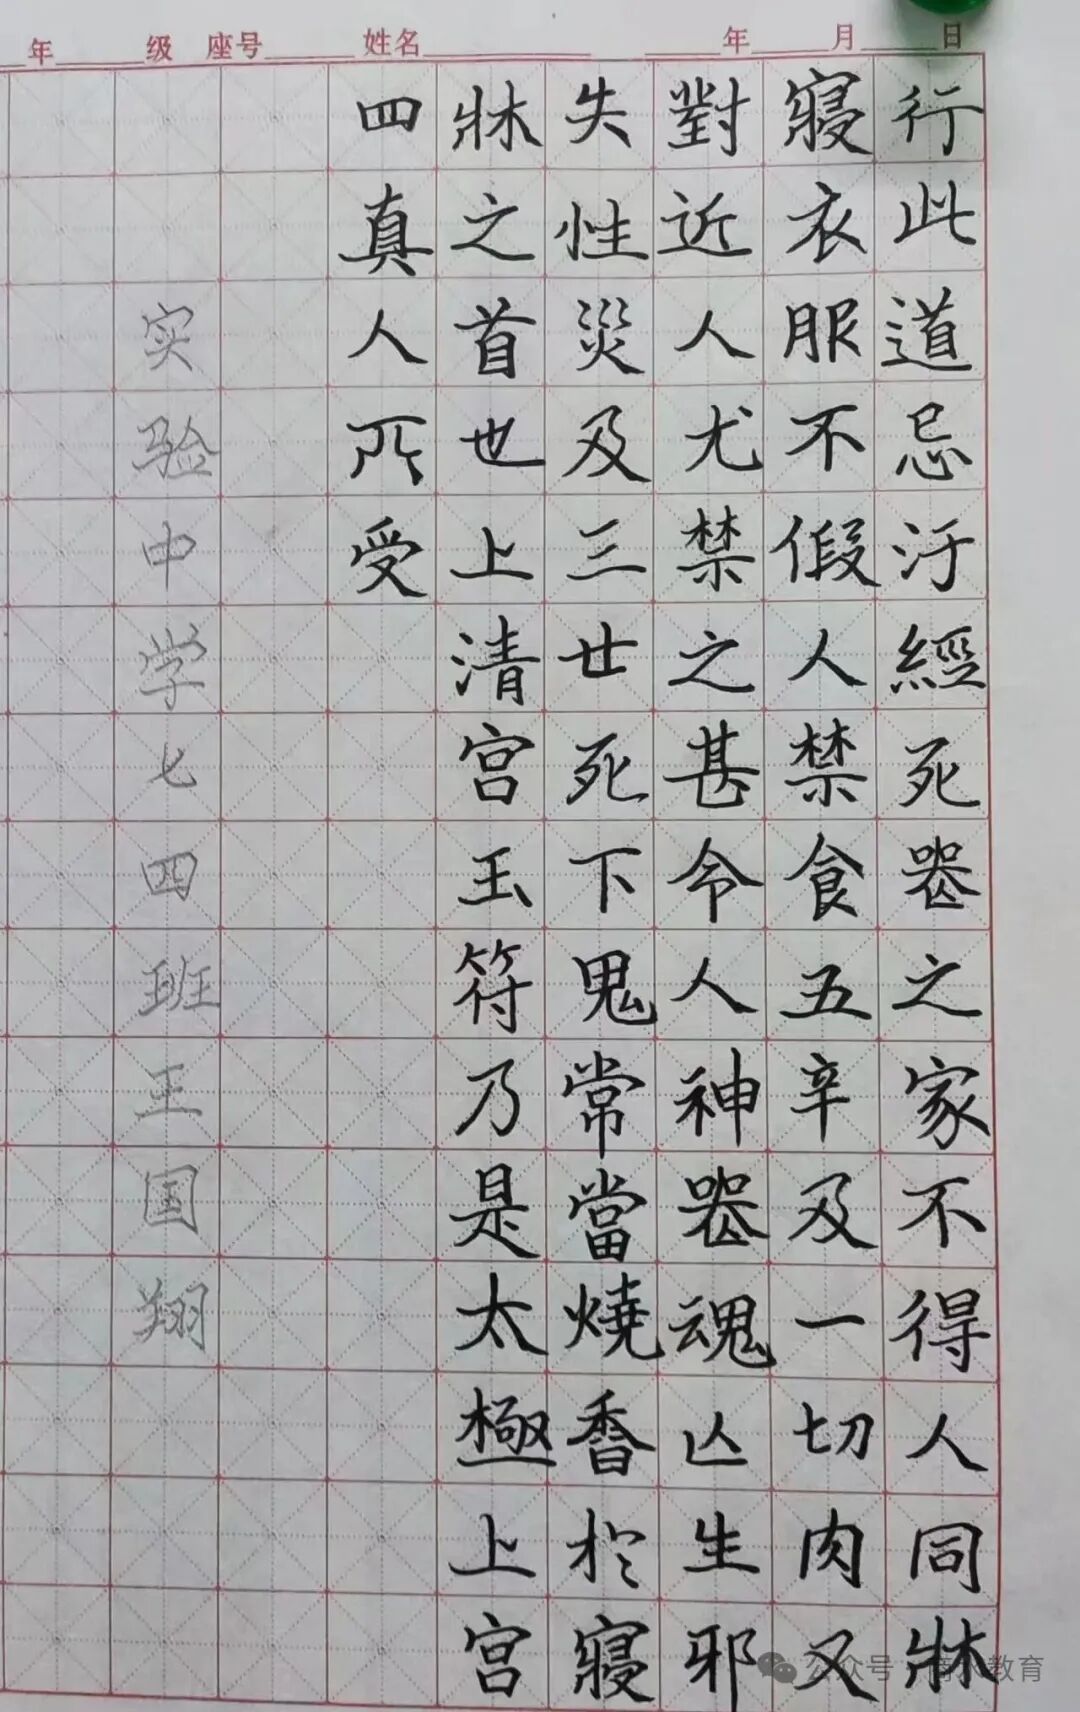 年 级 座号 姓名 年 月 日
行此道忌汙經死喪之家不得人同牀
寢衣服不假人禁食五辛及一切肉又
對近人尤禁之甚令人神喪魂亡生邪
失性災及三廿死下鬼常當燒香於寢
牀之首也上清宫玉符乃是太極上宫
四真人所受
实验中学七四班王国翔
公众号 教育